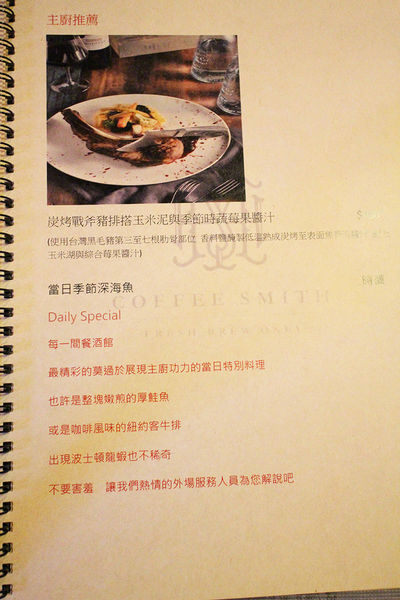 主廚推薦
炭烤戰斧豬排搭玉米泥與季節時蔬莓果醬汁
(使用台灣黑毛豬第三至七根肋骨部位 香料鹽醃製低溫熟成炭烤至表面焦
玉米湖與綜合莓果醬汁)
當日季節深海魚
時價
COFFEE SMITH
FRESH BREW ONLY
Daily Special
每一間餐酒館
最精彩的莫過於展現主廚功力的當日特別料理
也許是整塊嫩煎的厚鮭魚
或是咖啡風味的紐約客牛排
出現波士頓龍蝦也不稀奇
不要害羞 讓我們熱情的外場服務人員為您解說吧